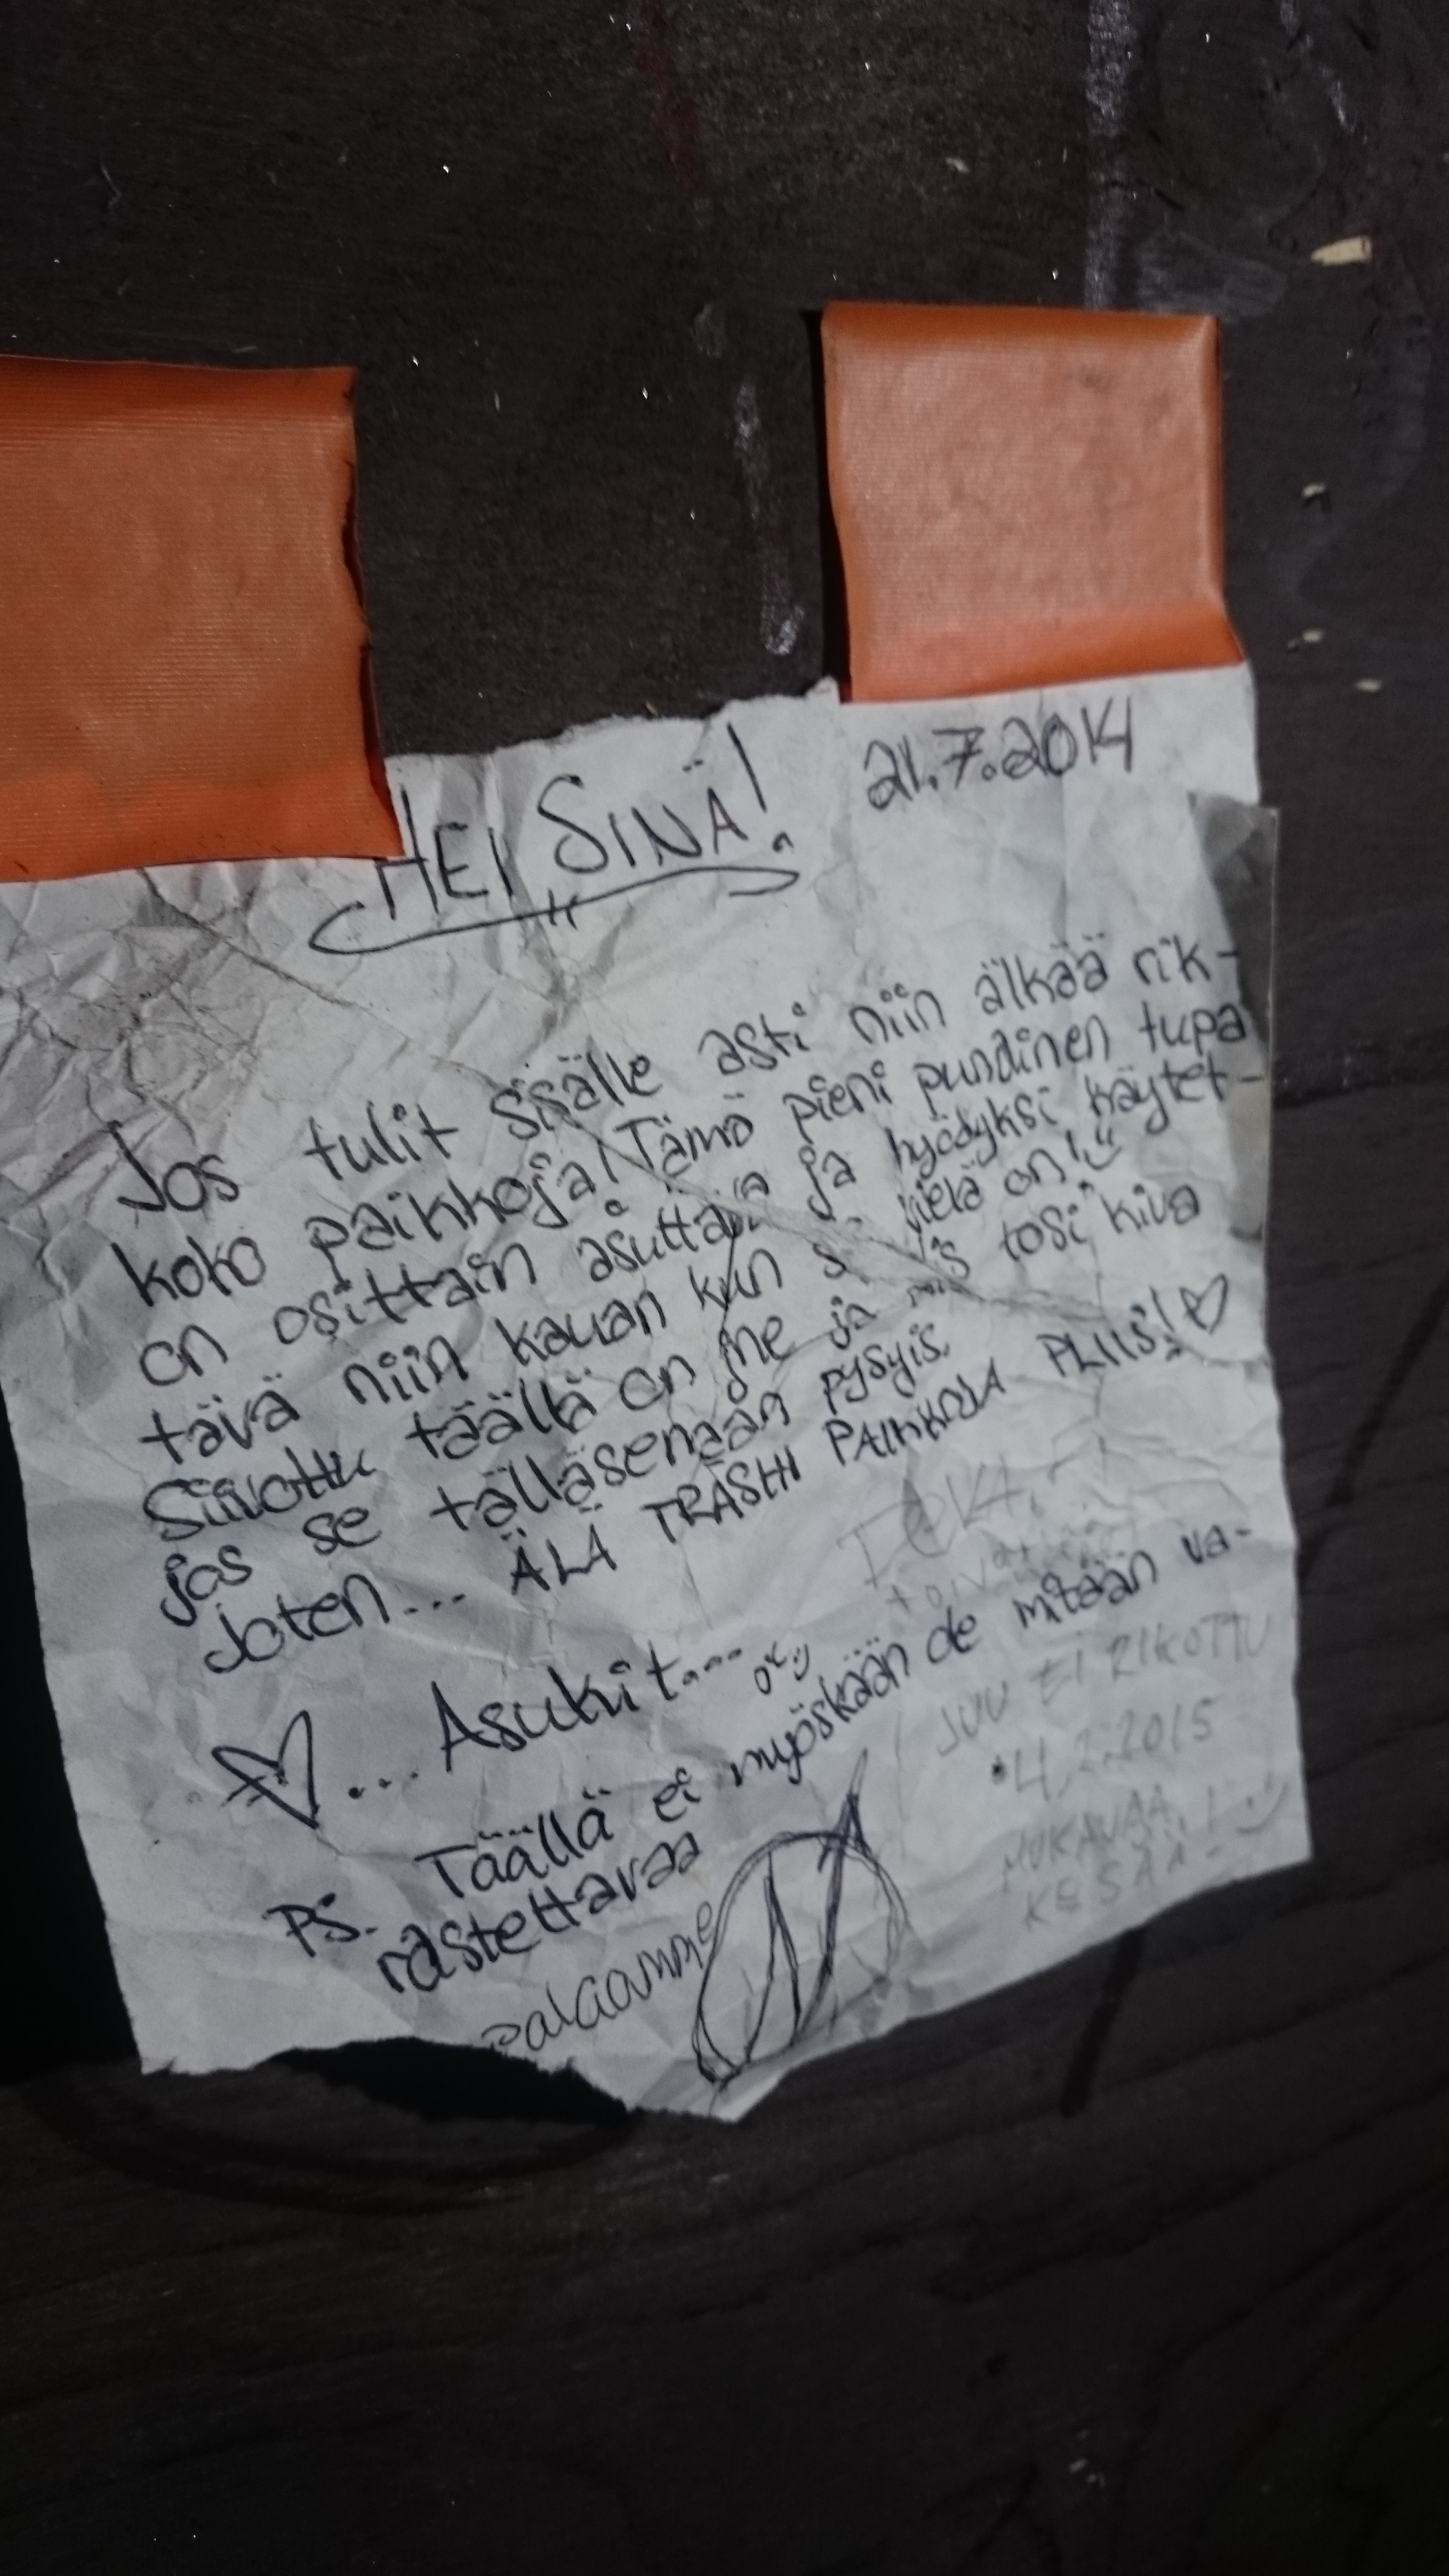 HEI SINÄ! 21.7.2014
Jos tulit sisälle asti niin älkää rik-
koko paikkoja! Tämä pieni pundinen tupa
on osittain asuttava ja hyödyksi käytet-
tävä niin kauan kun vielä on!
Siivottu täällä on me ja tosi kiva
jos se tälläsenään pysyis.
Joten... ÄLÄ TRÄSHI PAIKKOJA PLIIS! ♡
♡... Asukit...
PS. Täällä ei myöskään oe mitään va-
rastettavaa
palaamme
JUU EI RIKOTTU
4.2.2015
MUKAVAA
KESÄÄ